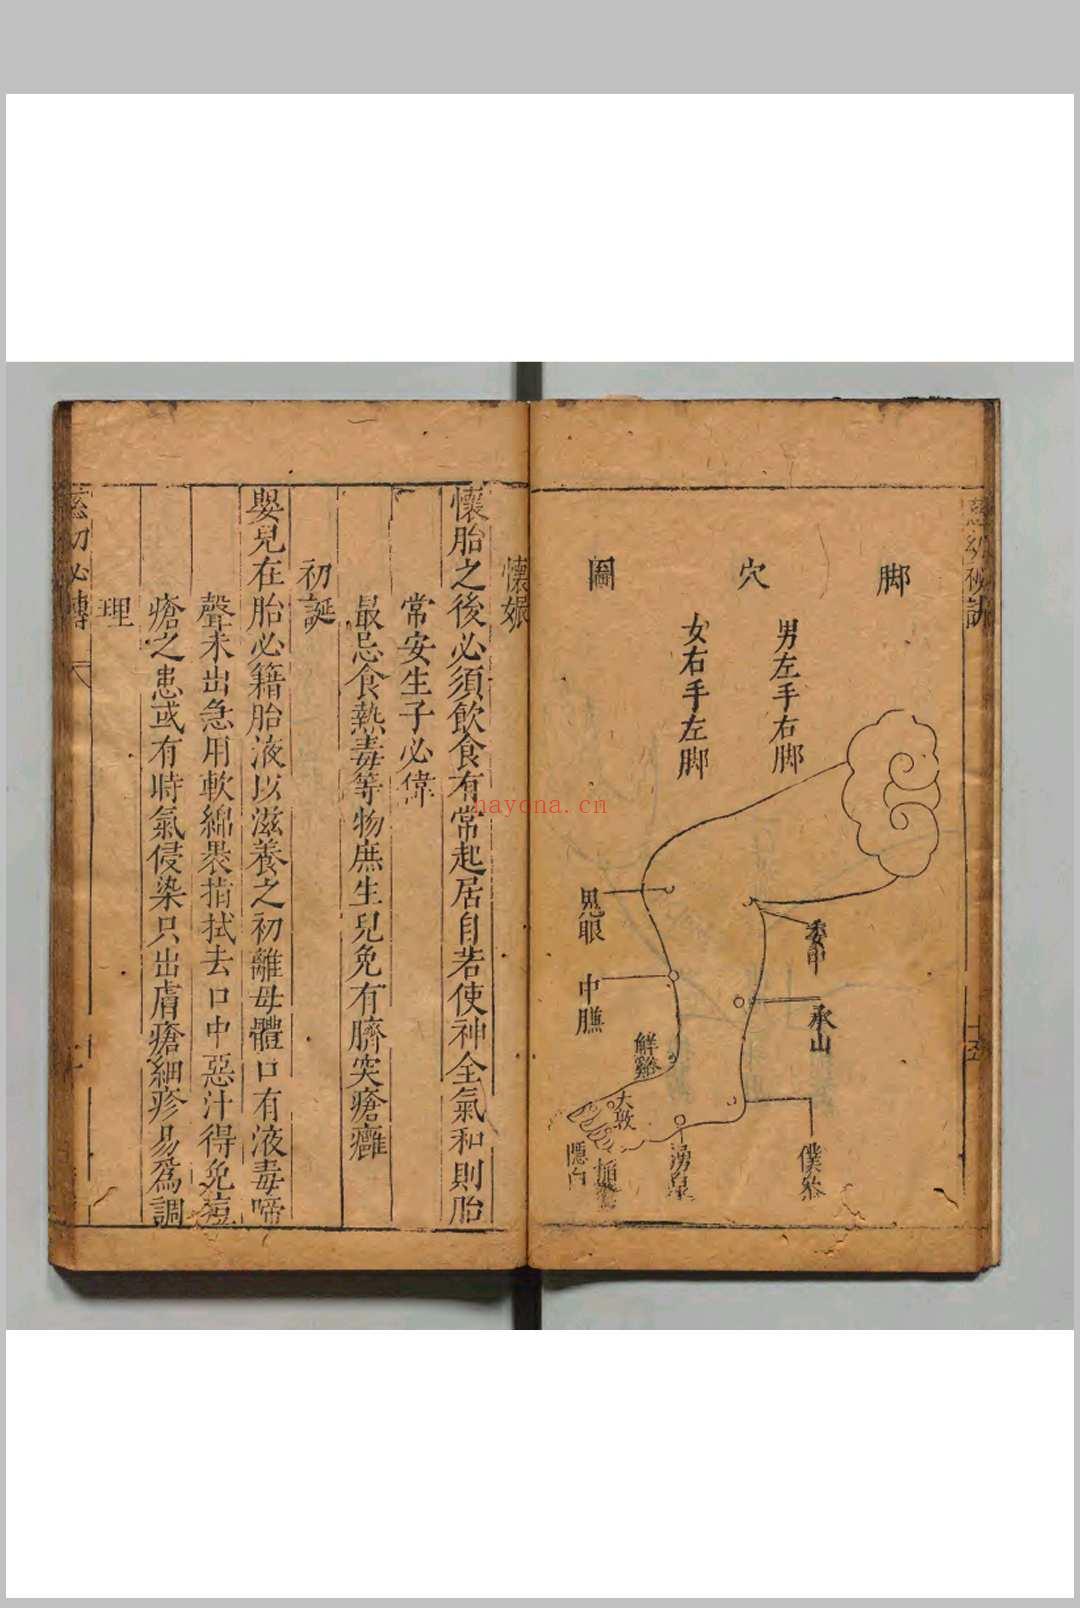 脚穴圖
男左手右脚
女右手左脚
鬼眼
中臁
鮮谿
大敦
隱白
湧泉
委中
承山
僕參
懷娠
懷胎之後必須飲食有常起居自若使神全氣和則胎
常安生子必偉
最忌食熱毒等物庶生兒免有臍突瘡癰
初誕
嬰兒在胎必籍胎液以滋養之初離母體口有液毒啼
聲未出急用軟綿裹指拭去口中惡汁得免痘
瘡之患或有時氣侵染只出膚瘡細疹易爲調
理
nayona.cn